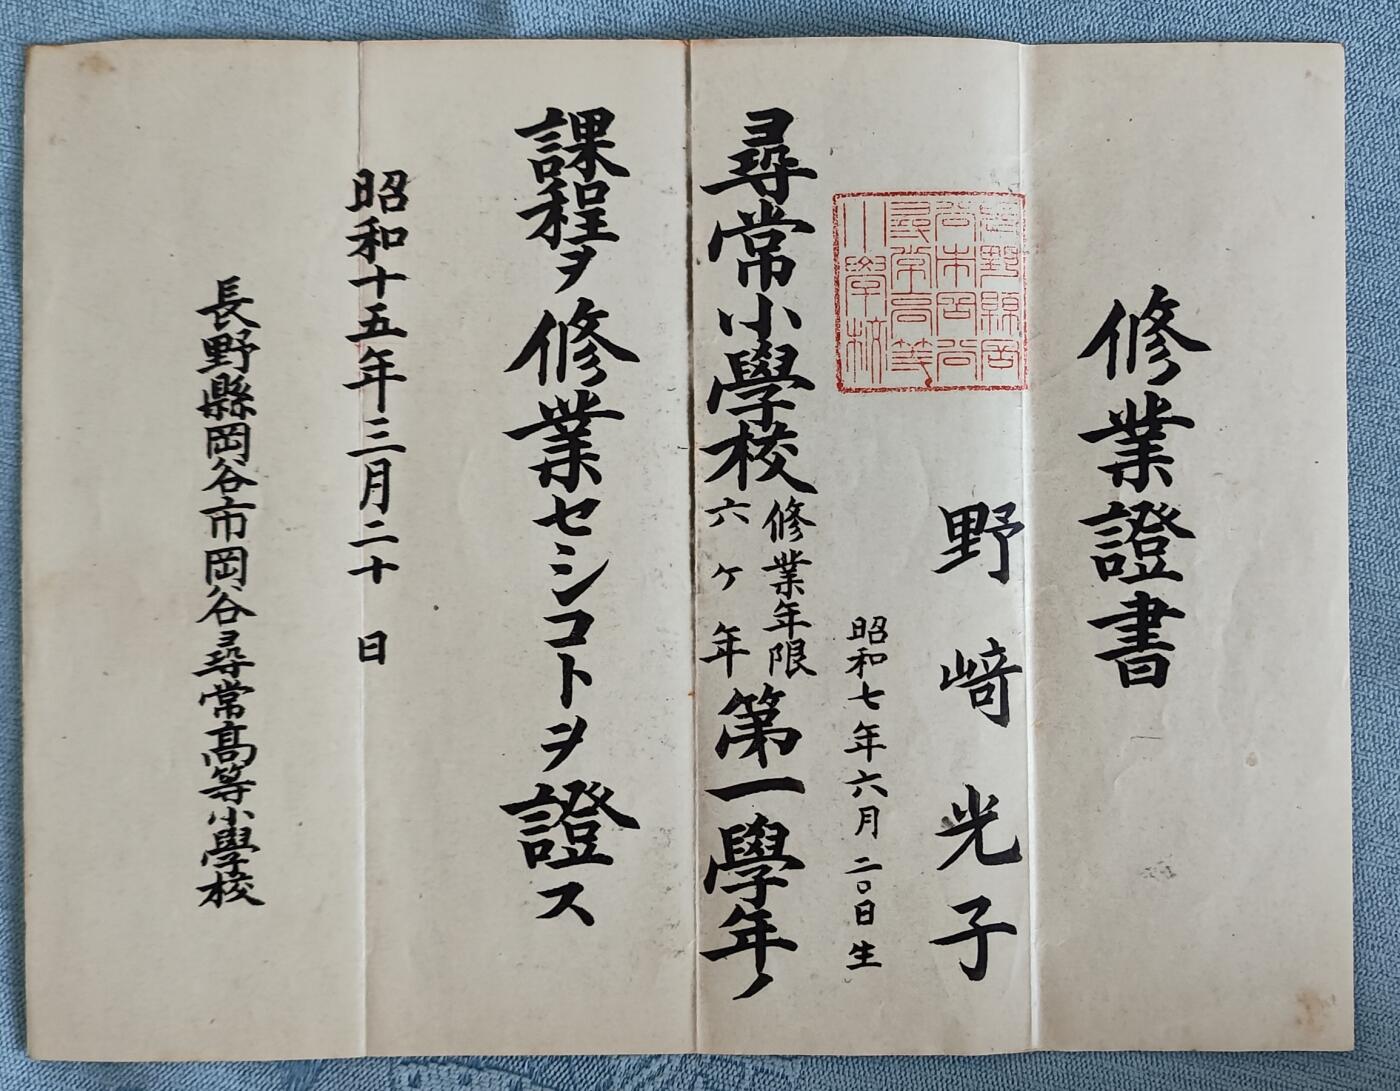 修業證書
野﨑光子
昭和七年六月二〇日生
長野縣岡
谷市岡谷
尋常高等
小學校
尋常小學校修業年限六ヶ年第一學年ノ
課程ヲ修業セシコトヲ證ス
昭和十五年三月二十日
長野縣岡谷市岡谷尋常高等小學校